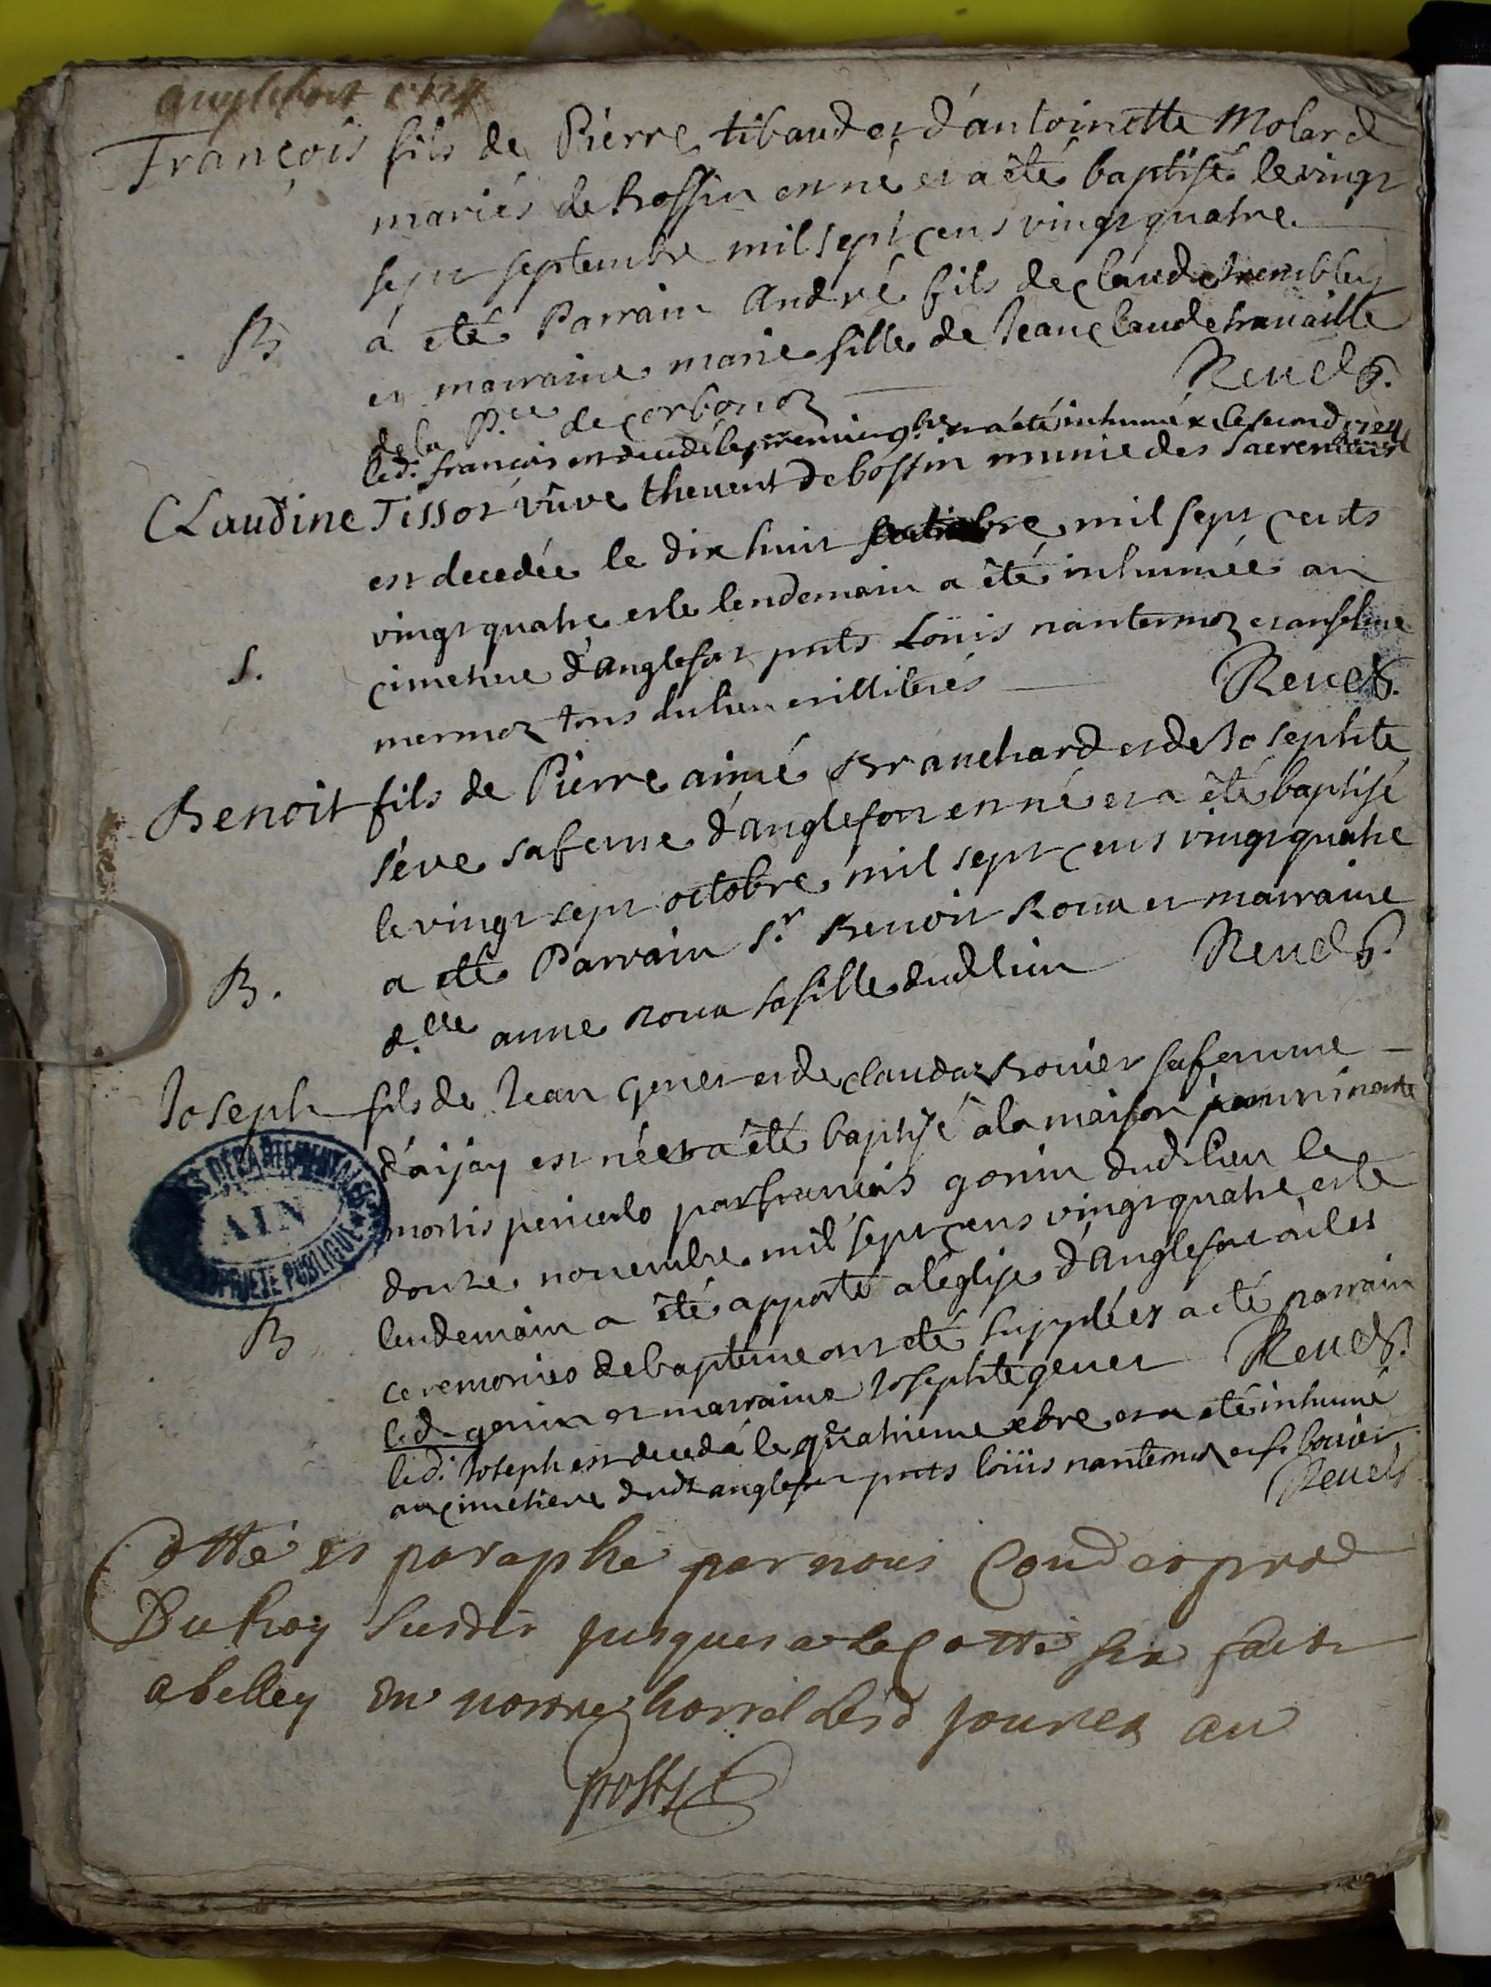 François fils de Pierre tibaud et d'antoinette Molard
mariés de bossin est né et a été baptisé le vingt
sept septembre mil sept cens vingt quatre
B à eté Parrain André fils de claude trembley
et marraine marie fille de Jean claude travaille
de la P.ce de corbonoz Reuel c.
led. françois est decedé le premier 9bre et a été inhumé le second 1724
CLaudine Tissot vûve thevent de bossin munie des Sacremens
est decedée le dix huit octobre mil sept cents
vingt quatre et le lendemain a été inhumée au
S. cimetiere d'anglefort pnts Loüis nantermoz et anselme
mermoz tous du lieu et illiterés Reuel c.
Benoit fils de Pierre aimé Branchard et de Josephte
séve sa feme d'anglefort est né et a été baptisé
le vingt sept octobre mil sept cens vingt quatre
a eté Parrain S.r Benoit Roux et marraine
B. d.elle anne Roux sa fille dud lieu Reuel c.
Joseph fils de Jean genet et de claudaz bovier sa femme
d'aijay est né et a été baptisé a la maison imminente
mortis periculo par françois genin dud. lieu le
douze novembre mil sept cens vingt quatre et le
B lendemain a été apporté a l'eglise d'anglefort où les
ceremonies de bapteme ont eté supplées a eté parrain
led. genin et marraine Josephte genet Reuel c.
led. Joseph est decedé le quatrieme xbre et a eté inhumé
au cimetiere dudt anglefort pnts loüis nantermoz et f. bovier
Reuel c.
Cotté et paraphé par nous Cond et prod
Du Roy susdit jusques a la cotte six fait
a belley en nostre hostel lesd jour et an
ARCHIVES DEPARTEMENTALES
AIN
PROPRIETE PUBLIQUE